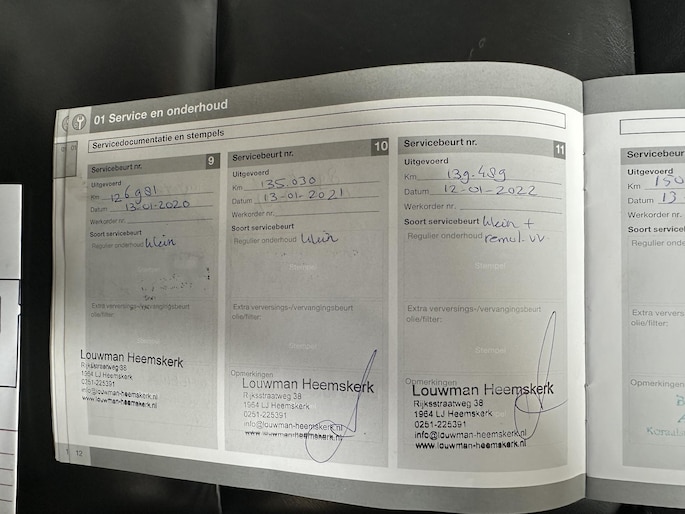 01 Service en onderhoud
Servicedocumentatie en stempels
Servicebeurt nr. 9
Uitgevoerd
Km 126.981
Datum 13-01-2020
Werkorder nr.
Soort servicebeurt
Regulier onderhoud klein
Stempel
Extra verversings-/vervangingsbeurt
olie/filter:
Louwman Heemskerk
Rijksstraatweg 38
1964 LJ Heemskerk
0251-225391
info@louwman-heemskerk.nl
www.louwman-heemskerk.nl
12
Servicebeurt nr. 10
Uitgevoerd
Km 135.030
Datum 13-01-2021
Werkorder nr.
Soort servicebeurt
Regulier onderhoud klein
Stempel
Extra verversings-/vervangingsbeurt
olie/filter:
Stempel
Opmerkingen
Louwman Heemskerk
Rijksstraatweg 38
1964 LJ Heemskerk
0251-225391
info@louwman-heemskerk.nl
www.louwman-heemskerk.nl
Servicebeurt nr. 11
Uitgevoerd
Km 139.489
Datum 12-01-2022
Werkorder nr.
Soort servicebeurt klein +
Regulier onderhoud remvl. vv.
Stempel
Extra verversings-/vervangingsbeurt
olie/filter:
Stempel
Opmerkingen
Louwman Heemskerk
Rijksstraatweg 38
1964 LJ Heemskerk
0251-225391
info@louwman-heemskerk.nl
www.louwman-heemskerk.nl
Servicebeur
Uitgevoerd
Km 150
Datum 13
Werkorder nr.
Soort servicebe
Regulier onder
Extra verversin
olie/filter:
Opmerkingen